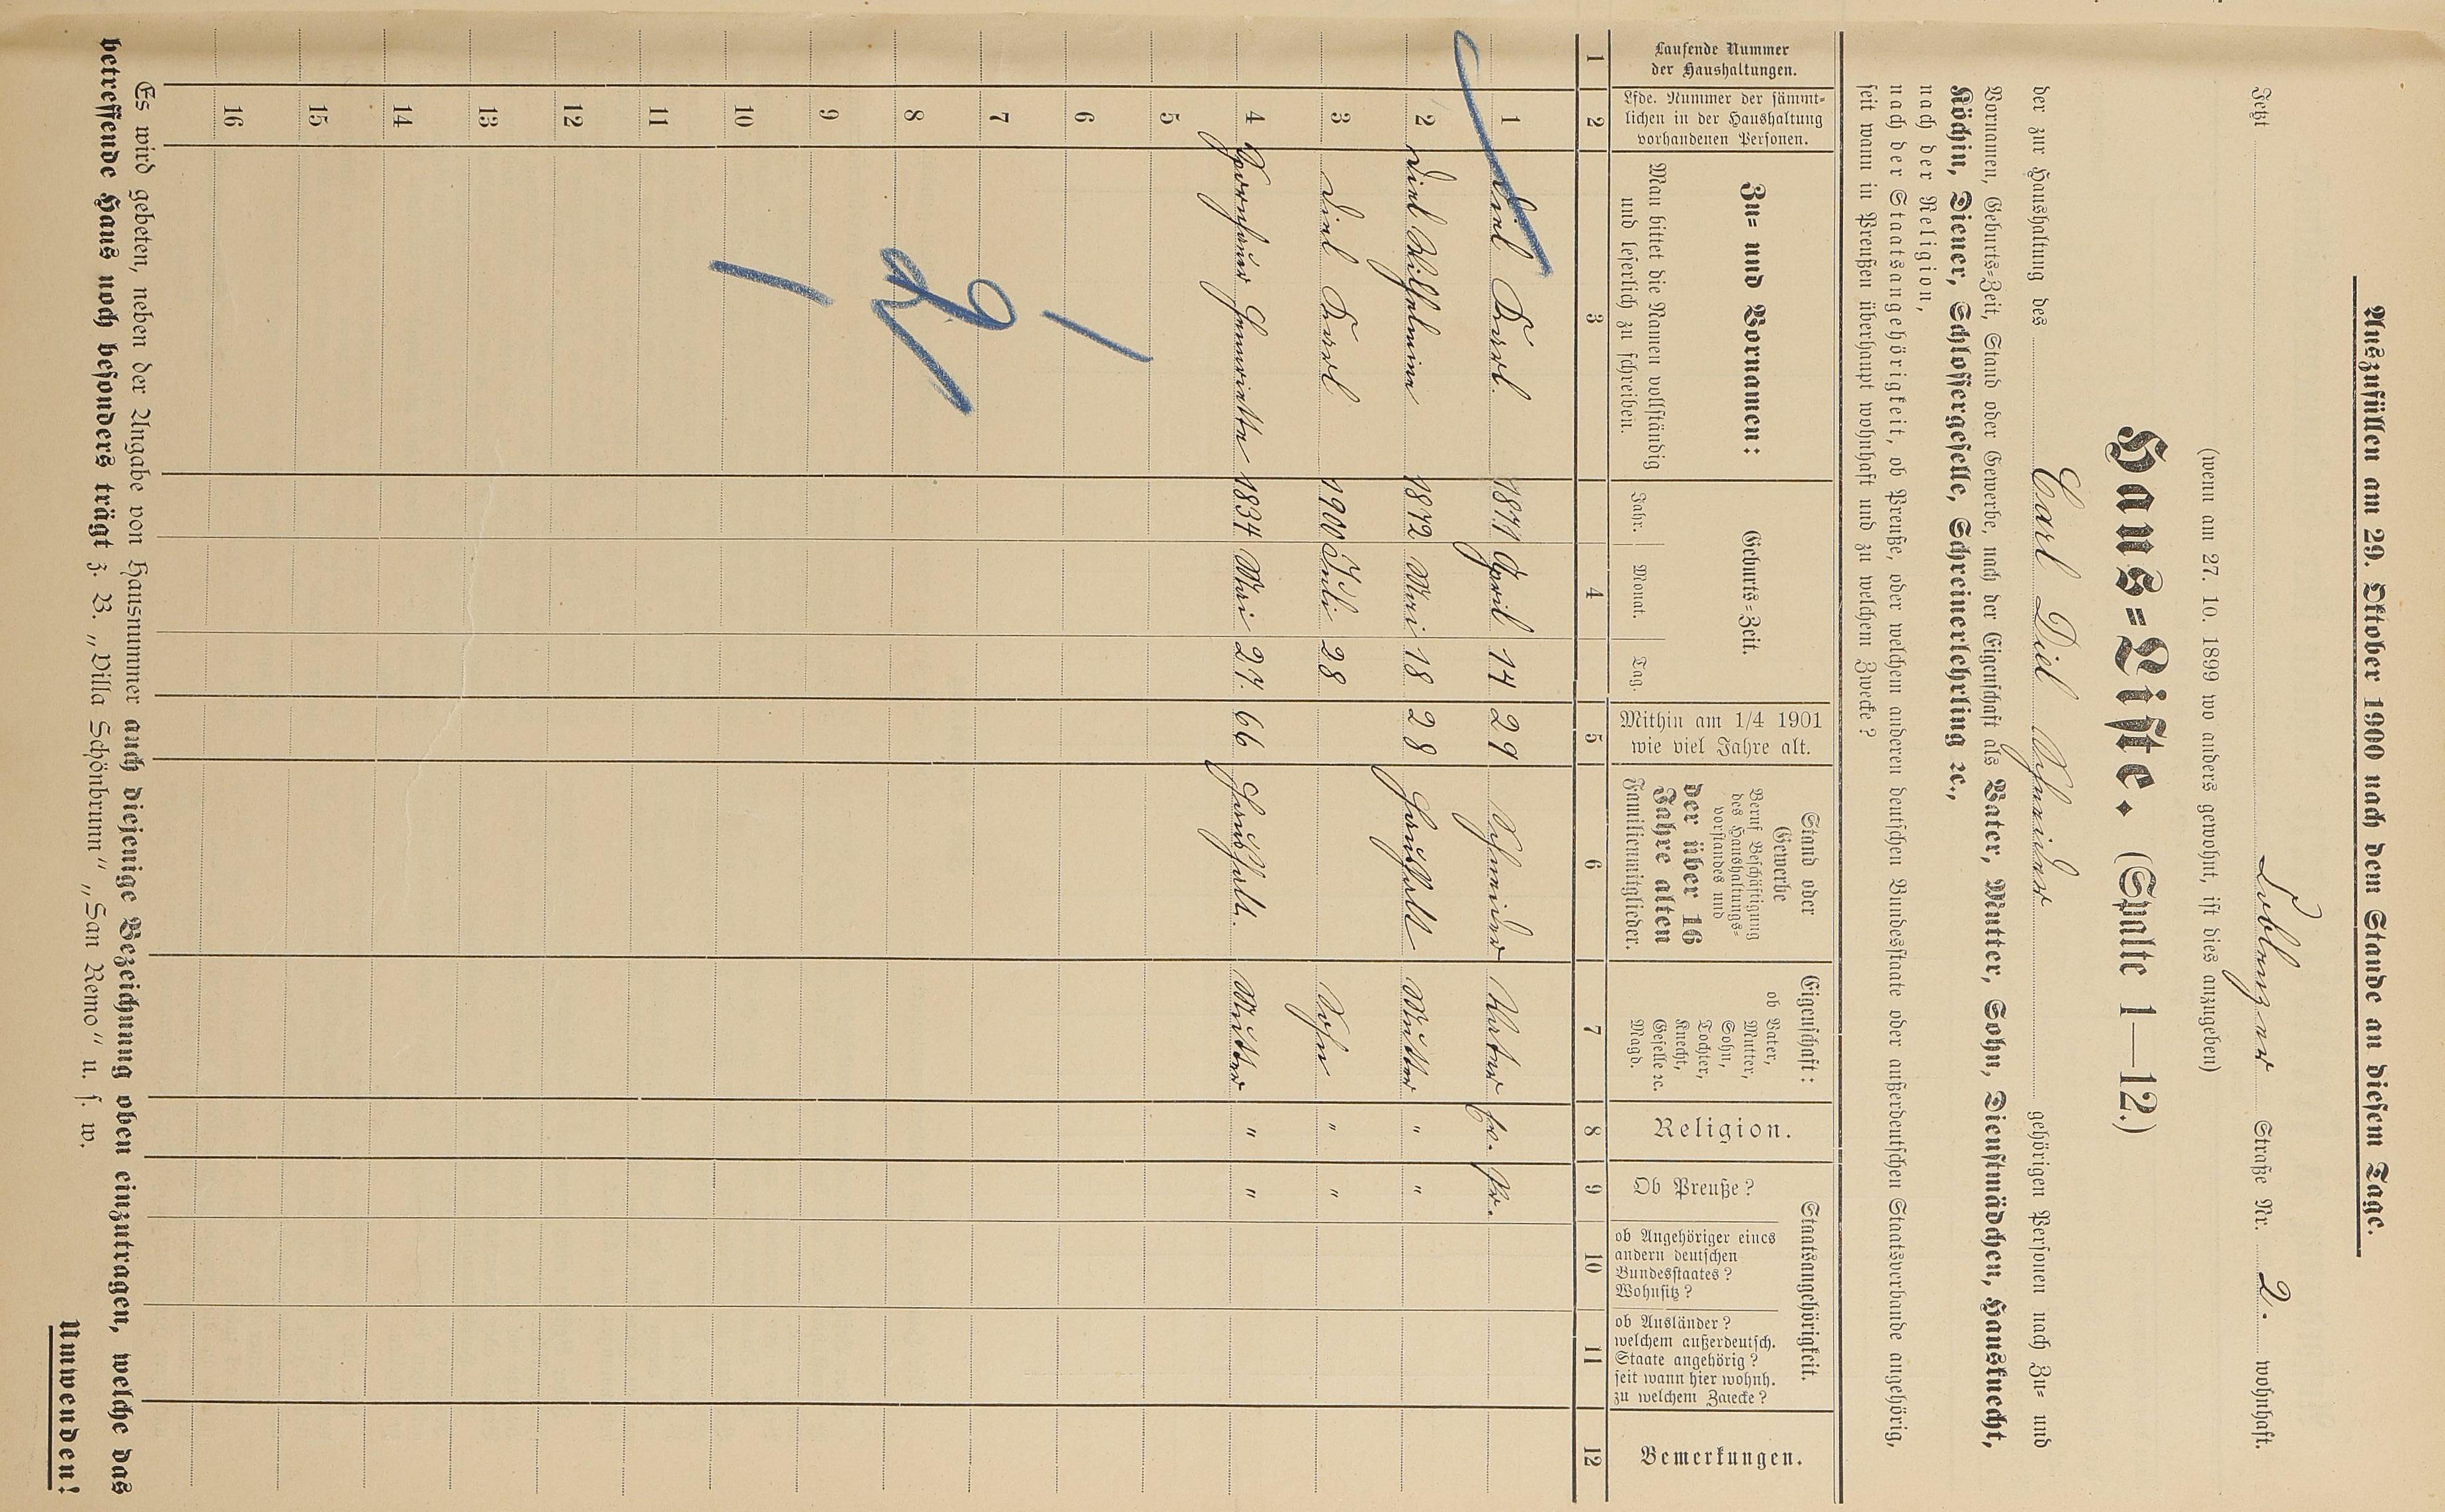 Auszufüllen am 29. Oktober 1900 nach dem Stande an diesem Tage.
Jetzt Loblenzer Straße Nr. 2. wohnhaft.
(wenn am 27. 10. 1899 wo anders gewohnt, ist dies anzugeben)
Haus-Liste. (Spalte 1—12.)
der zur Haushaltung des Carl Diel Schneider gehörigen Personen nach Zu- und
Vornamen, Geburts-Zeit, Stand oder Gewerbe, nach der Eigenschaft als Vater, Mutter, Sohn, Dienstmädchen, Hausknecht,
Köchin, Diener, Schlossergeselle, Schreinerlehrling ꝛc.,
nach der Religion,
nach der Staatsangehörigkeit, ob Preuße, oder welchem anderen deutschen Bundesstaate oder außerdeutschen Staatsverbande angehörig,
seit wann in Preußen überhaupt wohnhaft und zu welchem Zwecke?
Laufende Nummer
der Haushaltungen.
Lfde. Nummer der sämmt-
lichen in der Haushaltung
vorhandenen Personen.
Zu- und Vornamen:
Man bittet die Namen vollständig
und leserlich zu schreiben.
Geburts-Zeit.
Jahr. Monat. Tag.
Mithin am 1/4 1901
wie viel Jahre alt.
Stand oder
Gewerbe
Beruf Beschäftigung
des Haushaltungs-
vorstandes und
der über 16
Jahre alten
Familienmitglieder.
Eigenschaft:
ob Vater,
Mutter,
Sohn,
Tochter,
Knecht,
Geselle ꝛc.
Magd.
Religion.
Staatsangehörigkeit.
Ob Preuße?
ob Angehöriger eines
andern deutschen
Bundesstaates?
Wohnsitz?
ob Ausländer?
welchem außerdeutsch.
Staate angehörig?
seit wann hier wohnh.
zu welchem Zwecke?
Bemerkungen.
1 2 3 4 5 6 7 8 9 10 11 12
1 Diel Karl. 1871 April 14 29 Schneider Vater Ev. Pr.
2 Diel Wilhelmine 1872 Mai 18 28 Haushalt Mutter " "
3 Diel Karl 1900 Juli 28 Sohn " "
4 Henriette 1834 Mai 27. 66 Haushalt. Mutter " "
5
6
7
8
9
10
11
12
13
14
15
16
Es wird gebeten, neben der Angabe von Hausnummer auch diejenige Bezeichnung oben einzutragen, welche das
betreffende Haus noch besonders trägt z. B. „Villa Schönbrunn" „San Remo" u. s. w.
Umwenden!